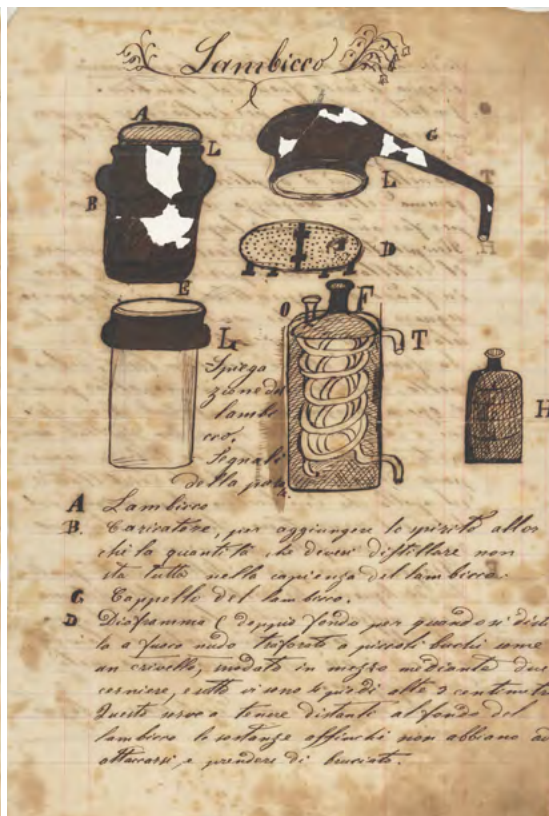 Lambicco
A
L
B
G
L
T
H
D
E
L
O
F
T
H
Spiega
zione del
lambic
co.
Segnali
della parte.
A Lambicco
B. Caricatore, per aggiungere lo spirito allor
chè la quantità che devesi distillare non
sta tutta nella capienza del lambicco.
C Cappello del lambicco.
D Diaframma e doppio fondo per quando si disti
la a fuoco nudo traforato a piccoli buchi come
un crivello, snodato in mezzo mediante due
cerniere, sotto vi sono 4 piedi alte 3 centimetri
Questo serve a tenere distanti al fondo del
lambicco le sostanze affinchi non abbiano ad
attaccarsi e prendere di bruciato.